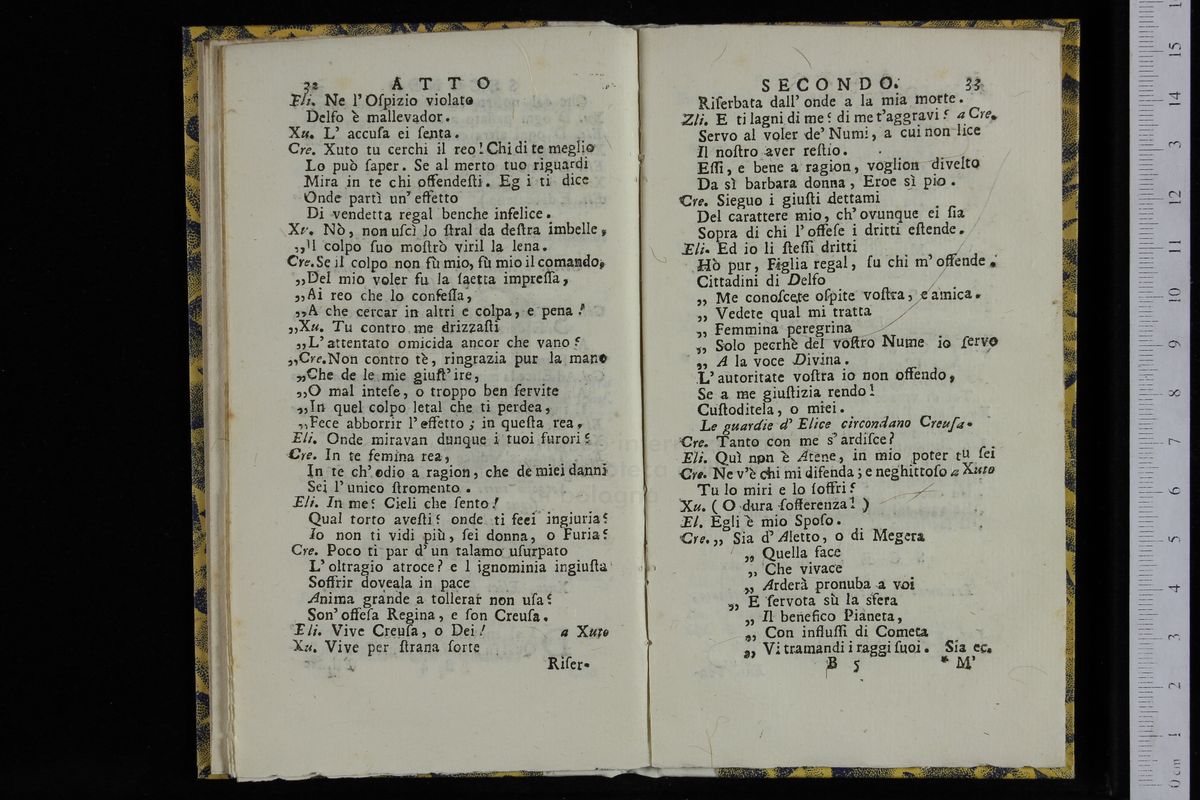 32 ATTO
Eli. Ne l'Oſpizio violato
Delfo è mallevador.
Xu. L' accuſa ei ſenta.
Cre. Xuto tu cerchi il reo! Chi di te meglio
Lo può ſaper. Se al merto tuo riguardi
Mira in te chi offendeſti. Eg i ti dice
Onde partì un' effetto
Di vendetta regal benche infelice.
Xu. Nò, non uſcì lo ſtral da deſtra imbelle,
,,Il colpo ſuo moſtrò viril la lena.
Cre. Se il colpo non fù mio, fù mio il comando,
,,Del mio voler fu la ſaetta impreſſa,
,,Ai reo che lo confeſſa,
,,A che cercar in altri e colpa, e pena?
,,Xu. Tu contro me drizzaſti
,,L' attentato omicida ancor che vano?
,,Cre. Non contro tè, ringrazia pur la mano
,,Che de le mie giuſt' ire,
,,O mal inteſe, o troppo ben ſervite
,,In quel colpo letal che ti perdea,
,,Fece abborrir l'effetto; in queſta rea,
Eli. Onde miravan dunque i tuoi furori?
Cre. In te femina rea,
In te ch' odio a ragion, che de miei danni
Sei l' unico ſtromento.
Eli. In me? Cieli che ſento!
Qual torto aveſti? onde ti feci ingiuria?
Io non ti vidi più, ſei donna, o Furia?
Cre. Poco ti par d' un talamo uſurpato
L' oltragio atroce? e l ignominia ingiuſta
Soffrir doveala in pace
Anima grande a tollerar non uſa?
Son' offeſa Regina, e ſon Creuſa.
Eli. Vive Creuſa, o Dei! a Xuto
Xu. Vive per ſtrana ſorte
Riſer-
SECONDO. 33
Riſerbata dall' onde a la mia morte.
Zli. E ti lagni di me? di me t'aggravi? a Cre.
Servo al voler de' Numi, a cui non lice
Il noſtro aver reſtio.
Eſſi, e bene a ragion, voglion divelto
Da sì barbara donna, Eroe sì pio.
Cre. Sieguo i giuſti dettami
Del carattere mio, ch' ovunque ei ſia
Sopra di chi l'offeſe i dritti eſtende.
Eli. Ed io li ſteſſi dritti
Hò pur, Figlia regal, ſu chi m'offende.
Cittadini di Delfo
,, Me conoſcete oſpite voſtra, e amica.
,, Vedete qual mi tratta
,, Femmina peregrina
,, Solo pecrhè del voſtro Nume io ſervo
,, A la voce Divina.
L' autoritate voſtra io non offendo,
Se a me giuſtizia rendo!
Cuſtoditela, o miei.
Le guardie d' Elice circondano Creuſa.
Cre. Tanto con me s'ardiſce?
Eli. Quì non è Atene, in mio poter tu ſei
Cre. Ne v'è chi mi difenda; e neghittoſo a Xuto
Tu lo miri e lo ſoffri?
Xu. ( O dura ſofferenza! )
El. Egli è mio Spoſo.
Cre. ,, Sia d' Aletto, o di Megera
,, Quella face
,, Che vivace
,, Arderà pronuba a voi
,, E ſervota sù la sfera
,, Il benefico Pianeta,
,, Con influſſi di Cometa
,, Vi tramandi i raggi ſuoi. Sia ec.
B 5 * M'